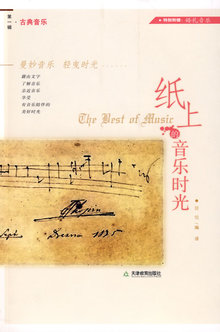 第一辑·古典音乐
特别附赠·婚礼音乐
曼妙音乐 轻曳时光……
翻动文字
了解音乐
亲近音乐
享受
有音乐陪伴的
美好时光
The Best of Music
纸上的音乐时光
Chopin
Dresden 1835
编著
天津教育出版社